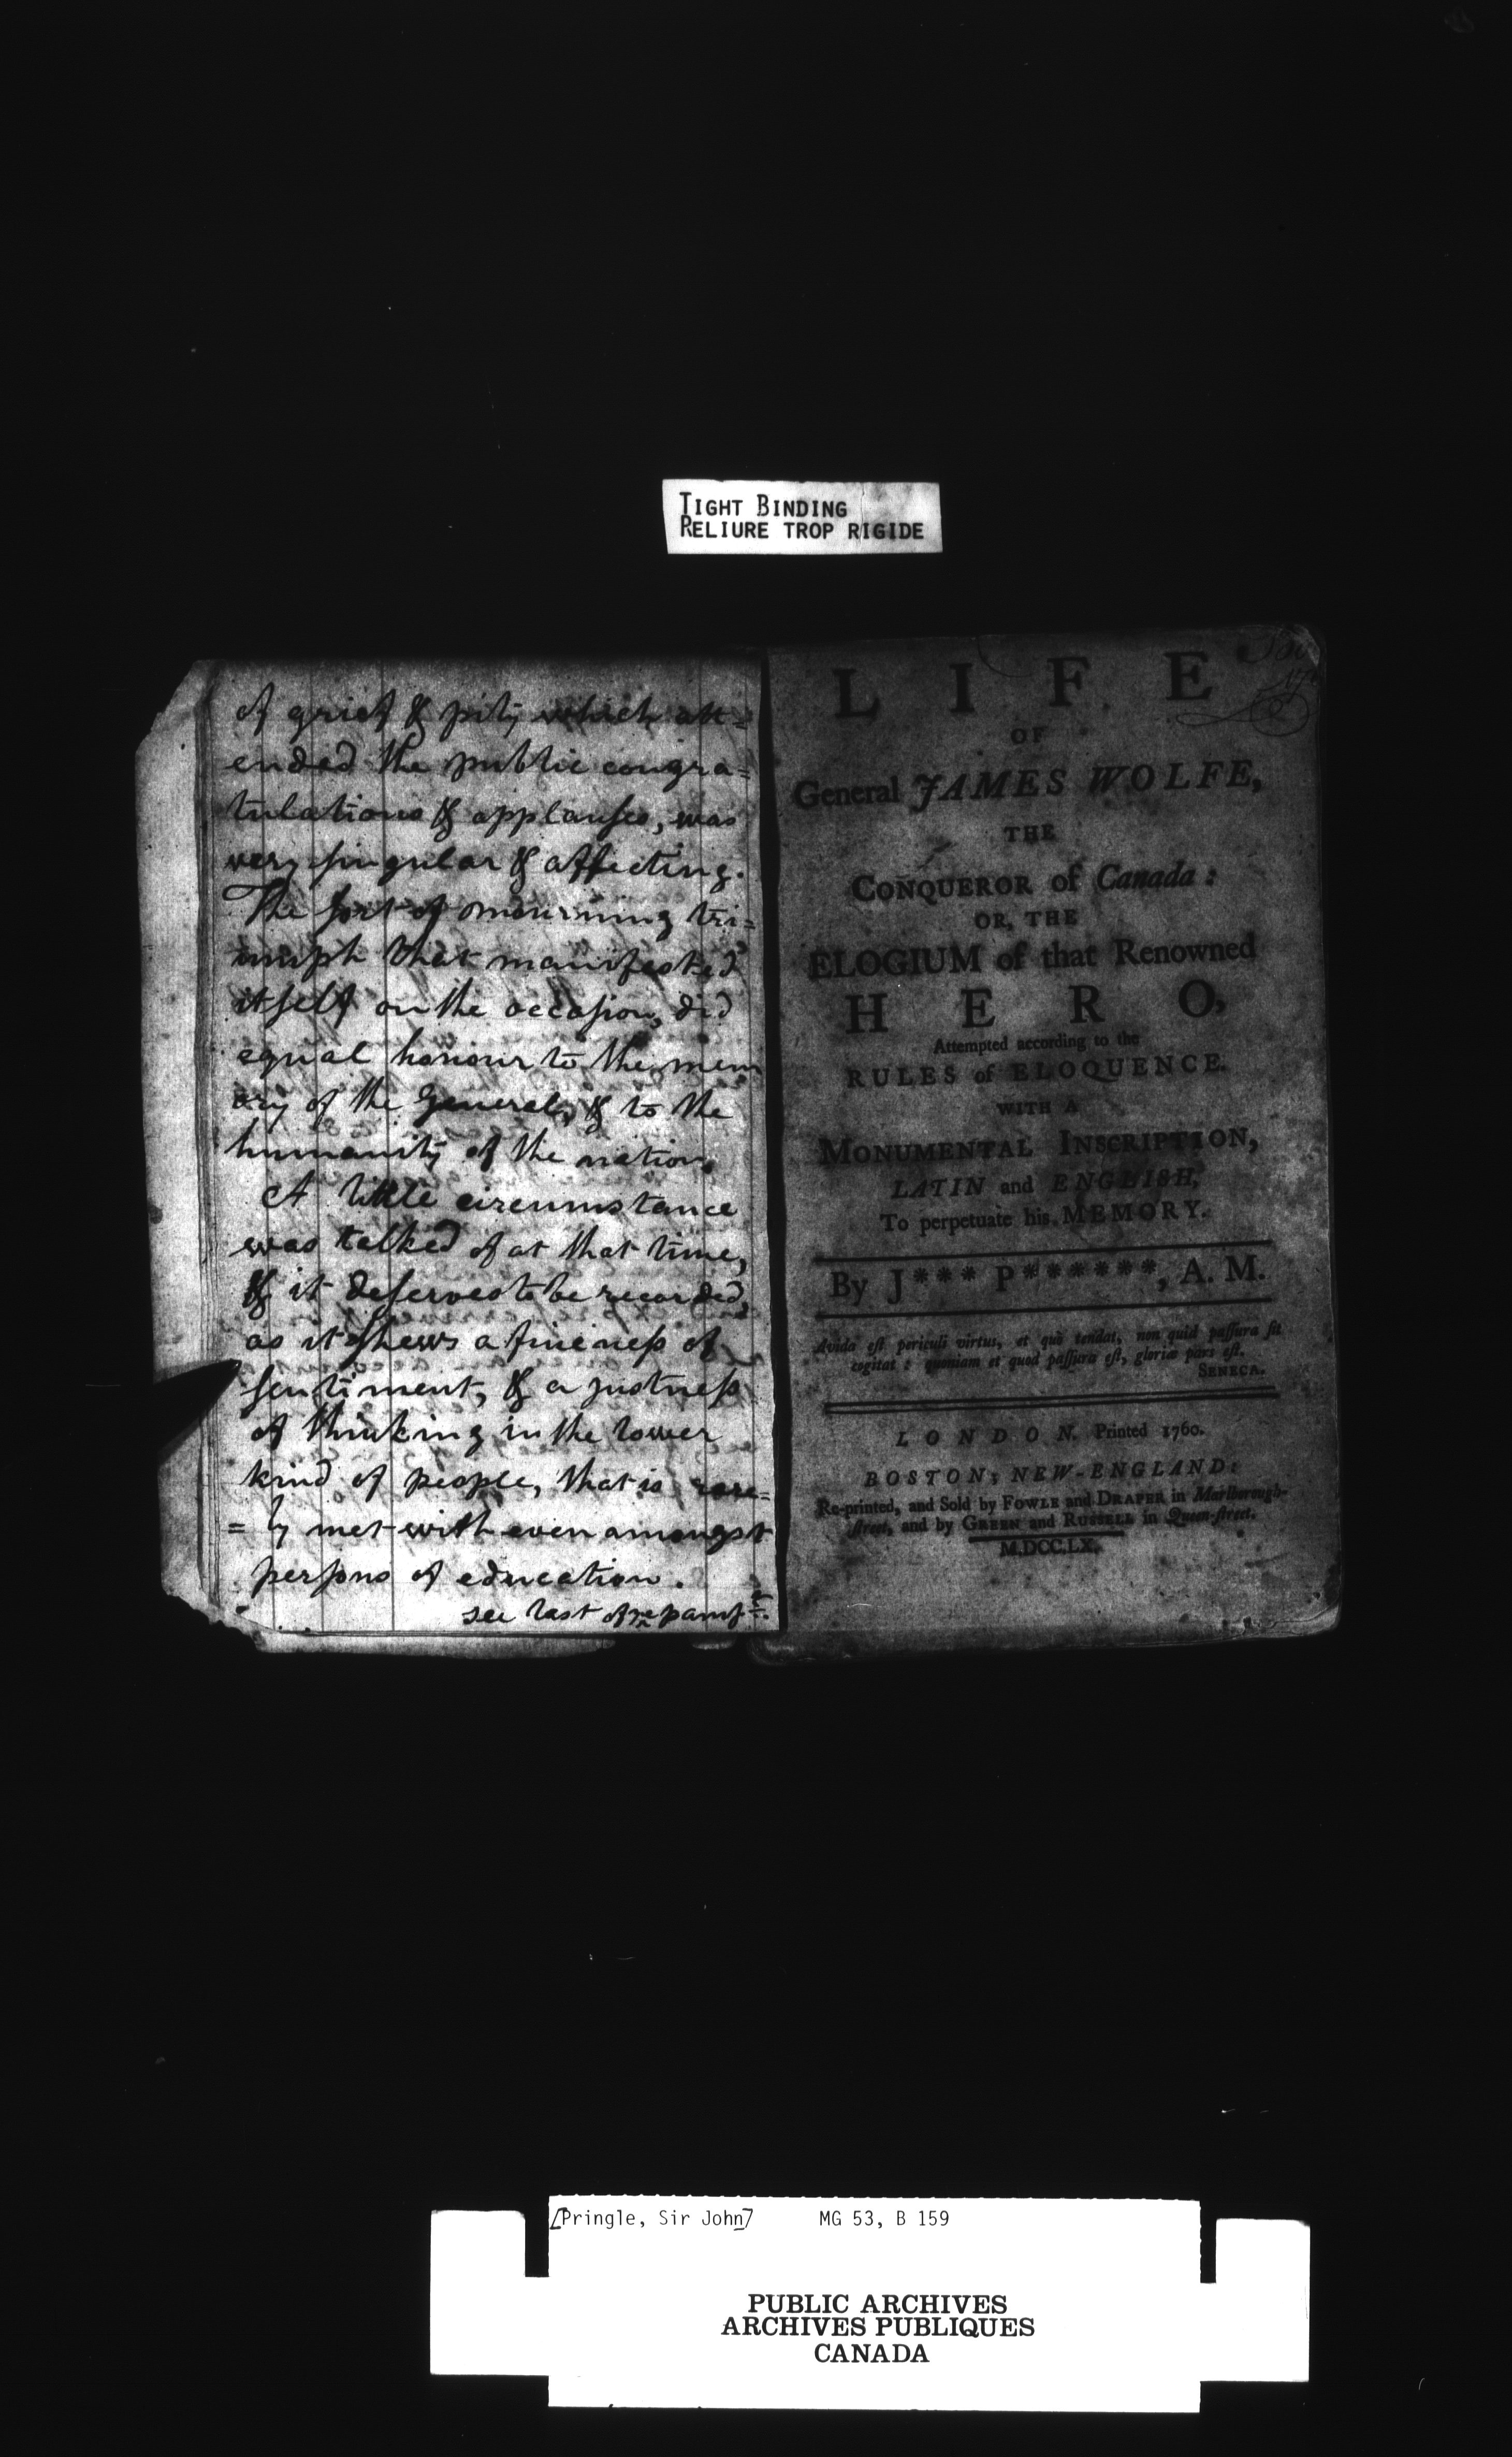 TIGHT BINDING
RELIURE TROP RIGIDE
of grief & pity which att=
ended the public congra=
tulations & applauses, was
very singular & affecting.
The sort of mourning tri=
umph that manifested
itself on the occasion, did
equal honour to the mem
ory of the General, & to the
humanity of the nation.
A little circumstance
was talked of at that time,
& it deserves to be recorded,
as it shews a fineness of
sentiment, & a justness
of thinking in the lower
kind of people, that is rare=
=ly met with even amongst
persons of education.
see last of ye pamft.
LIFE
OF
General JAMES WOLFE,
THE
CONQUEROR of Canada:
OR, THE
ELOGIUM of that Renowned
HERO,
Attempted according to the
RULES of ELOQUENCE.
WITH A
MONUMENTAL INSCRIPTION,
LATIN and ENGLISH,
To perpetuate his MEMORY.
By J*** P*******, A. M.
Avida est periculi virtus, et quò tendat, non quid passura sit
cogitat: quoniam et quod passura est, gloriæ pars est.
SENECA.
LONDON, Printed 1760.
BOSTON; NEW-ENGLAND:
Re-printed, and Sold by FOWLE and DRAPER in Marlborough-
street, and by GREEN and RUSSELL in Queen-street.
M,DCC,LX.
[Pringle, Sir John] MG 53, B 159
PUBLIC ARCHIVES
ARCHIVES PUBLIQUES
CANADA